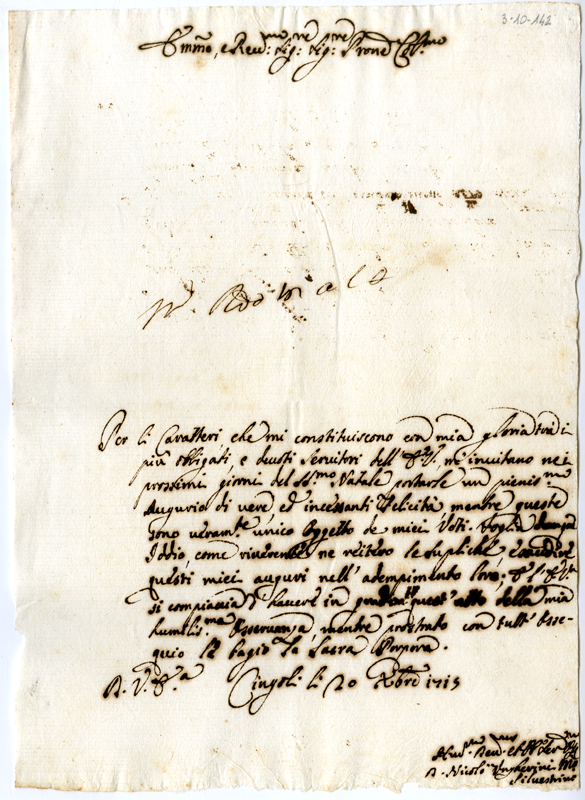 3-10-142
Em̃o, e Reu:mo Sig:re Sig:re Prone Col:mo
Per li Caratteri, che mi constituiscono con mia gloria trà i
più obligati, e deuoti Seruitori dell' E:V: m'inuitano nei
prossimi giorni del SS:mo Natale portarle un pienis:mo
Augurio di uere, ed incessanti felicità, mentre queste
sono ueram:te unico Oggetto de miei Voti. Voglia
Iddio, come riuerente ne reitero le supliche, esaudire
questi miei auguri nell' adempimento loro; e l'E:V:ra
si compiaccia d'hauere in quest' atto della mia
humilis:ma Osseruanza, mentre prostrato con tutt' Osse-
quio le bagio la Sacra Porpora.
D. V. E:a Cingoli li 20 Xbre 1715
D. Nicolò
Siluestrino